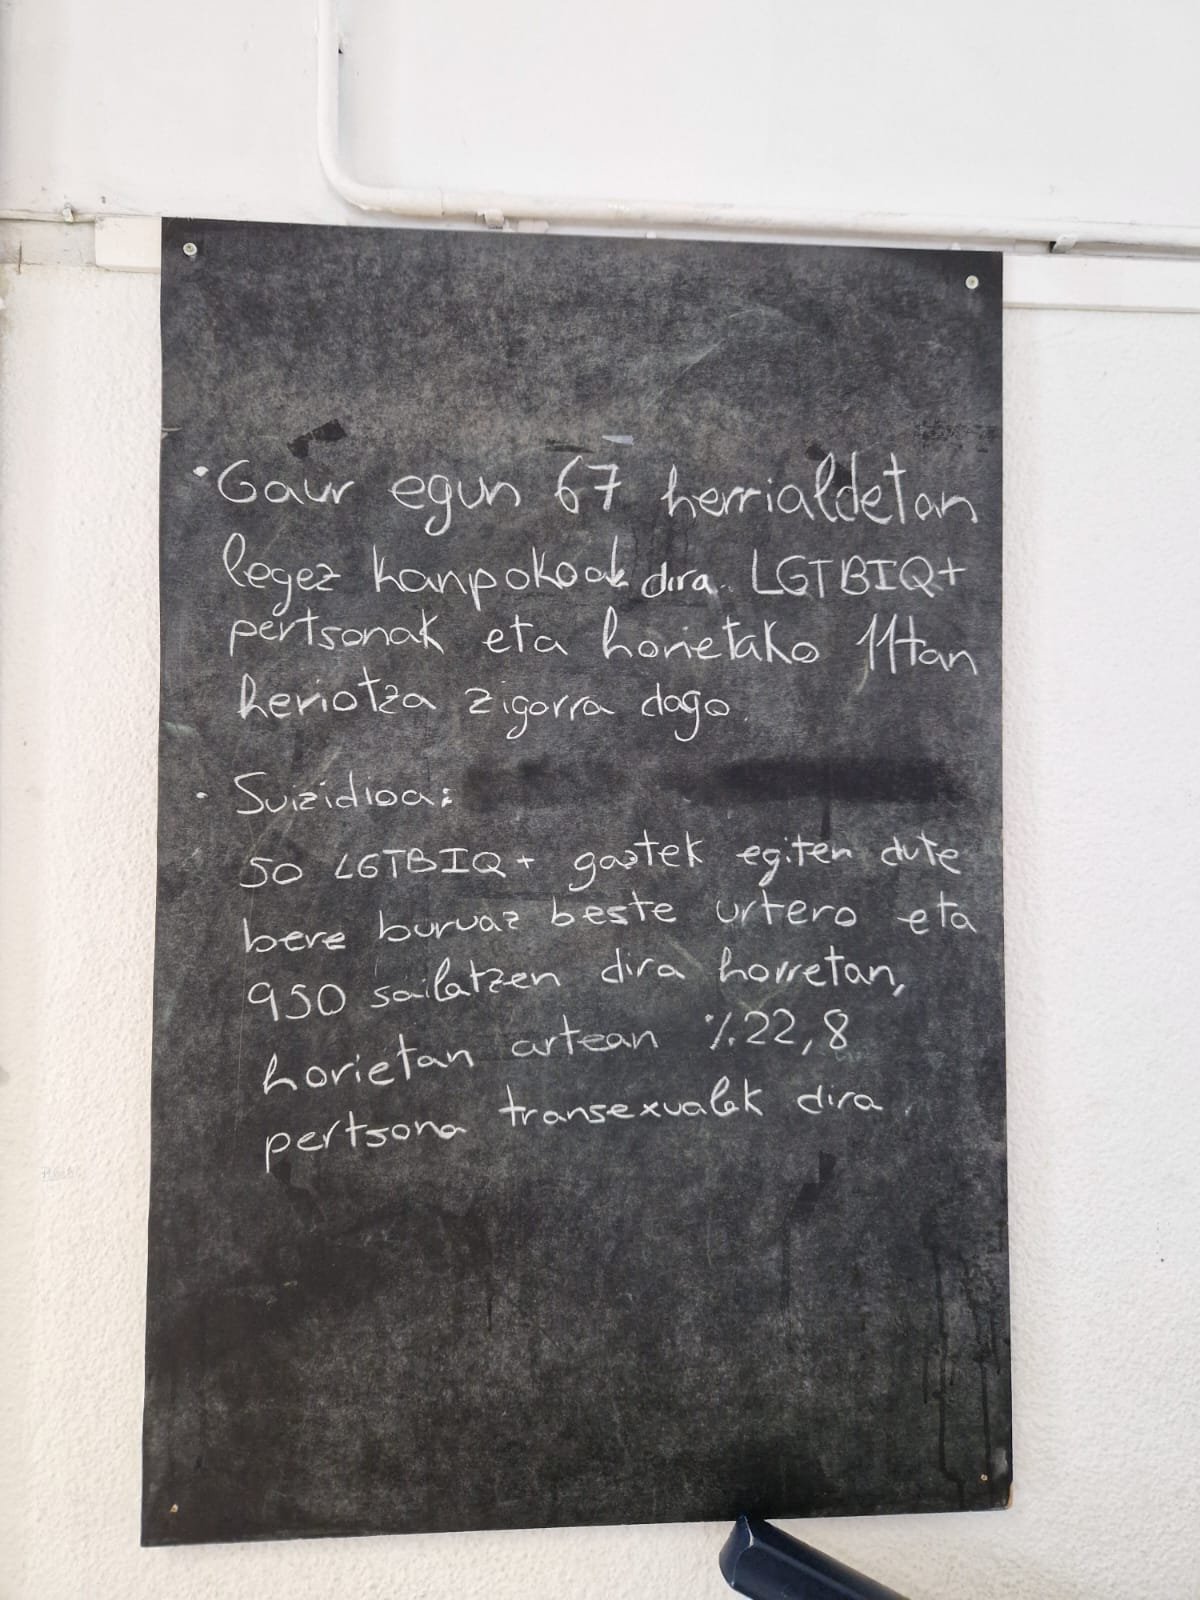 · Gaur egun 67 herrialdetan
legez kanpokoak dira LGTBIQ+
pertsonak eta horietako 11tan
heriotza zigorra dago.
· Suizidioa:
50 LGTBIQ+ gaztek egiten dute
bere buruaz beste urtero eta
950 sailatzen dira horretan,
horietan artean %22,8
pertsona transexualak dira.